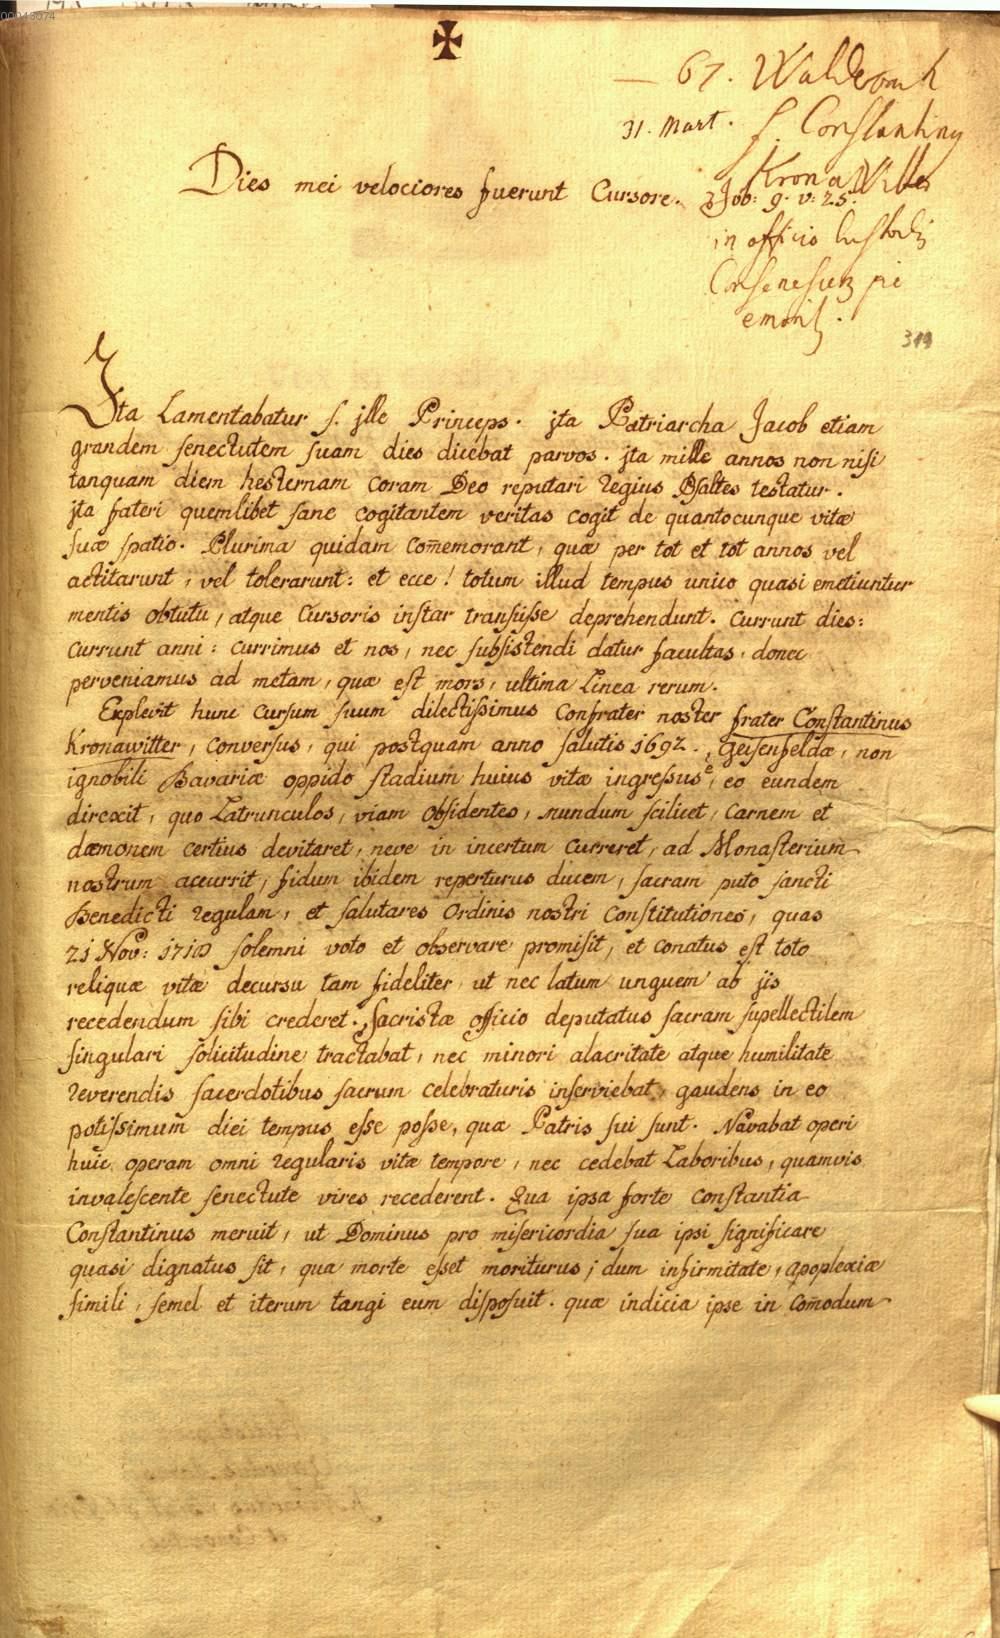 00043674
✠
— 67. Walderbach
31. Mart. f. Constantinq
Kronawitter
Dies mei velociores fuerunt Cursore. Job: 9. v: 25.
in officio
emorit.
319
Ita Lamentabatur s. jlle Princeps. jta Patriarcha Jacob etiam
grandem senectutem suam dies dicebat parvos. jta mille annos non nisi
tanquam diem hesternam coram Deo reputari Regius Psaltes testatur.
jta fateri quemlibet sane cogitantem veritas cogit de quantocunque vitæ
suæ spatio. Plurima quidam com̄emorant, quæ per tot et tot annos vel
actitarunt, vel tolerarunt: et ecce! totum illud tempus unico quasi emetiuntur
mentis obtutu, atque Cursoris instar transiisse deprehendunt. Currunt dies:
currunt anni: currimus et nos, nec subsistendi datur facultas, donec
perveniamus ad metam, quæ est mors, ultima Linea rerum.
Explevit hunc cursum suum dilectissimus Confrater noster frater Constantinus
Kronawitter, Conversus, qui postquam anno salutis 1692. Geisenfeldæ, non
ignobili Bavariæ oppido stadium huius vitæ ingressus ē, eo eundem
direxit, quo Latrunculos, viam obsidentes, mundum scilicet, Carnem et
dæmonem certius devitaret, neve in incertum curreret, ad Monasterium
nostrum accurrit, fidum ibidem reperturus ducem, sacram puto sancti
Benedicti Regulam, et salutares Ordinis nostri Constitutiones, quas
21 Nov: solemni voto et observare promisit, et conatus est toto
reliquæ vitæ decursu tam fideliter, ut nec latum unguem ab jis
recedendum sibi crederet. Sacristæ officio deputatus sacram supellectilem
singulari solicitudine tractabat, nec minori alacritate atque humilitate
Reverendis sacerdotibus sacrum celebraturis inserviebat, gaudens in eo
potissimum diei tempus esse posse, quæ Patris sui sunt. Navabat operi
huic operam omni regularis vitæ tempore, nec cedebat Laboribus, quamvis
invalescente senectute vires recederent. Qua ipsa forte constantia
Constantinus meruit, ut Dominus pro misericordia sua ipsi significare
quasi dignatus sit, qua morte esset moriturus; dum infirmitate, apoplexiæ
simili, semel et iterum tangi eum disposuit. quæ indicia ipse in com̄odum